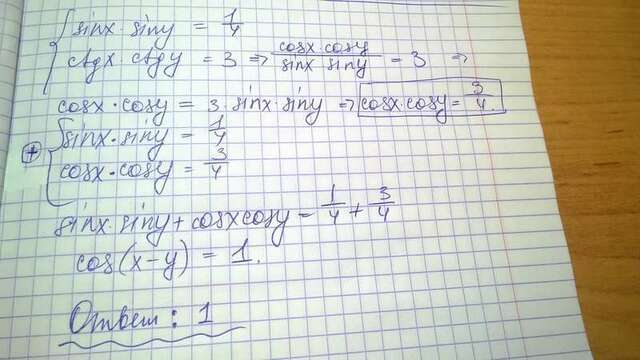 { sinx · siny = 1/4
ctgx · ctgy = 3 => cosx · cosy / sinx siny = 3 =>
cosx · cosy = 3 · sinx · siny => cosx · cosy = 3/4.
+ { sinx · siny = 1/4
cosx · cosy = 3/4
sinx · siny + cosx cosy = 1/4 + 3/4
cos(x-y) = 1.
Ответ: 1